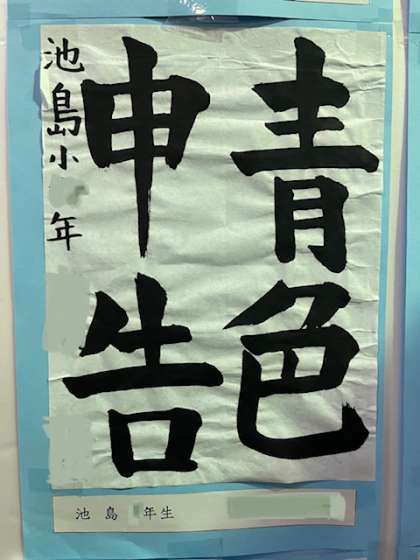 青色
申告
池島小 年
池島 年生